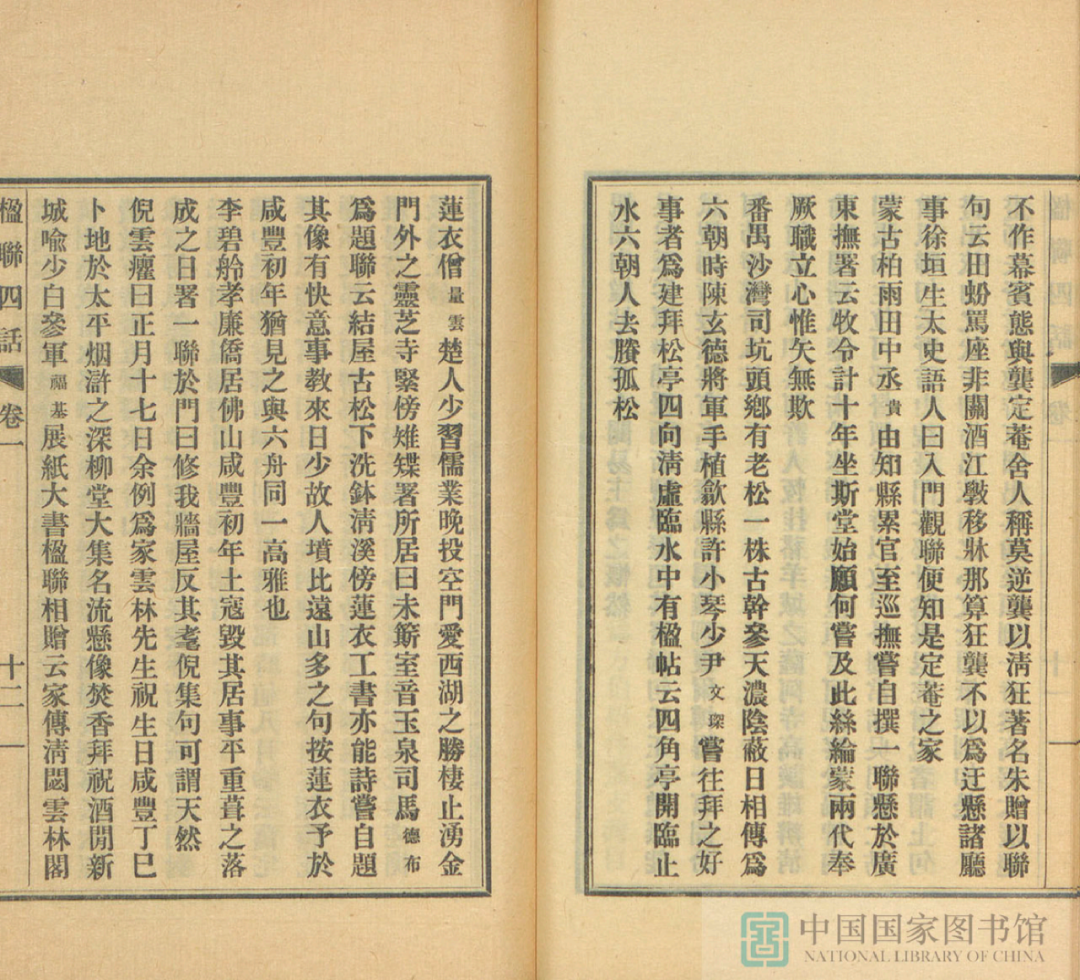 不作幕賓態與龔定菴舍人稱莫逆龔以淸狂著名朱贈以聯
句云田蚡罵座非關酒江斆移牀那算狂龔不以爲迂懸諸廳
事徐垣生太史語人曰入門觀聯便知是定菴之家
蒙古柏雨田中丞貴由知縣累官至巡撫嘗自撰一聯懸於廣
東撫署云牧令計十年坐斯堂始願何嘗及此絲綸蒙兩代奉
厥職立心惟矢無欺
番禺沙灣司坑頭鄉有老松一株古幹參天濃陰蔽日相傳爲
六朝時陳玄德將軍手植歙縣許小琴少尹文琛嘗往拜之好
事者爲建拜松亭四向淸虛臨水中有楹帖云四角亭開臨止
水六朝人去賸孤松
蓮衣僧量雲楚人少習儒業晚投空門愛西湖之勝棲止湧金
門外之靈芝寺緊傍雉蝶署所居曰未簖室音玉泉司馬德布
爲題聯云結屋古松下洗鉢淸溪傍蓮衣工書亦能詩嘗自題
其像有快意事教來日少故人墳比遠山多之句按蓮衣予於
咸豐初年猶見之與六舟同一高雅也
李碧舲孝廉僑居佛山咸豐初年土寇毀其居事平重葺之落
成之日署一聯於門曰修我牆屋反其耄倪集句可謂天然
倪雲癯曰正月十七日余例爲家雲林先生祝生日咸豐丁巳
卜地於太平烟滸之深柳堂大集名流懸像焚香拜祝酒閒新
城喻少白參軍福基展紙大書楹聯相贈云家傳淸閟雲林閣
楹聯四話
卷一
十二